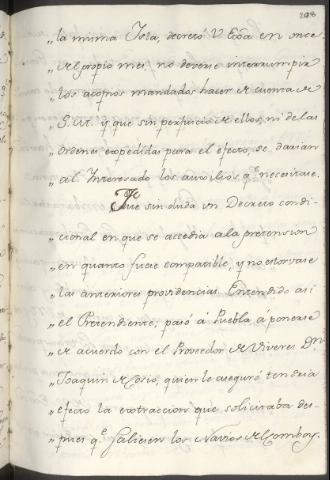 208
„la misma Jota, decretó V. Exâ en once
„del propio mes. no deverse interrumpir
„los acopios mandados hacer de cuenta de
„S.M. y que sin perjuicio de ellos, ni de las
„ordenes expedidas para el efecto, se darian
„al Interesado los auxilios q.e necesitase.
Fue sin duda un Decreto condi-
„cional en que se accedia a la pretension
„en quanto fuese compatible, y no estorvase
„las anteriores providencias. Entendido asi
„el Pretendiente, pasó á Puebla á ponerse
„de acuerdo con el Proveedor de Viveres Dn.
„Joaquin de Cosio, quien le aseguró tendria
„efecto la extraccion que solicitaba des-
„pues q.e saliesen los Navios del Comboy.